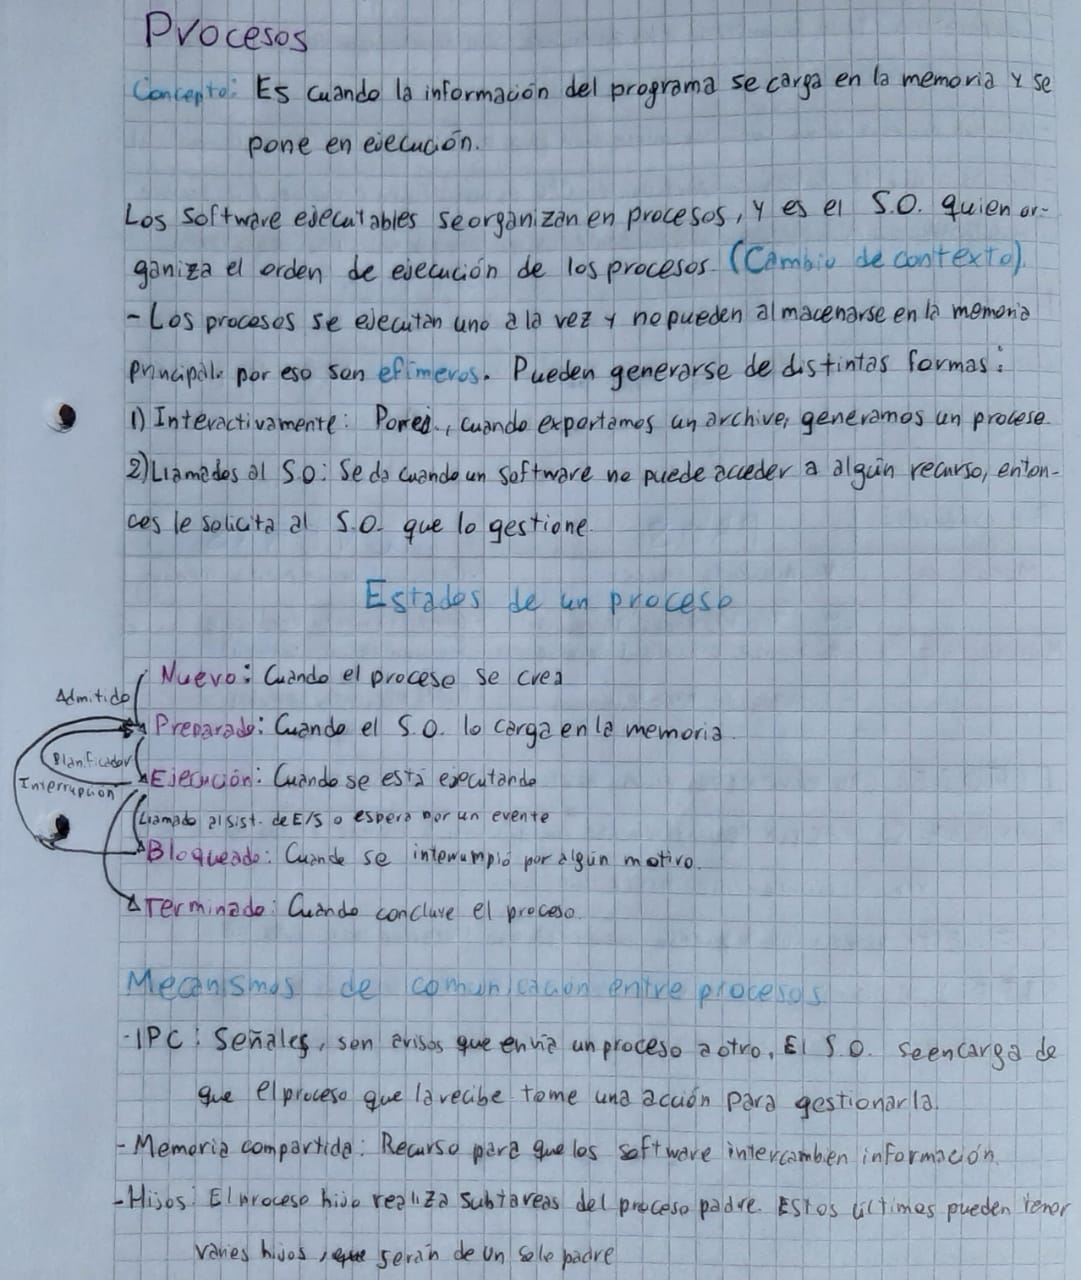 Procesos
Concepto: Es cuando la información del programa se carga en la memoria y se
pone en ejecución.
Los software ejecutables se organizan en procesos, y es el S.O. quien or-
ganiza el orden de ejecución de los procesos. (Cambio de contexto).
- Los procesos se ejecutan uno a la vez y no pueden almacenarse en la memoria
principal. por eso son efímeros. Pueden generarse de distintas formas:
1) Interactivamente: Por ej., cuando exportamos un archivo, generamos un proceso.
2) Llamados al S.O: Se da cuando un software no puede acceder a algún recurso, enton-
ces le solicita al S.O. que lo gestione.
Estados de un proceso
Nuevo: Cuando el proceso se crea
Admitido
Preparado: Cuando el S.O. lo carga en la memoria.
Planificador
Ejecución: Cuando se está ejecutando
Interrupción
Llamado al sist. de E/S o espera por un evento
Bloqueado: Cuando se interrumpió por algún motivo.
Terminado: Cuando concluye el proceso.
Mecanismos de comunicación entre procesos
- IPC: Señales, son avisos que envía un proceso a otro, El S.O. se encarga de
que el proceso que la recibe tome una acción para gestionarla.
- Memoria compartida: Recurso para que los software intercambien información.
- Hijos: El proceso hijo realiza subtareas del proceso padre. Estos últimos pueden tener
varios hijos, que serán de un solo padre